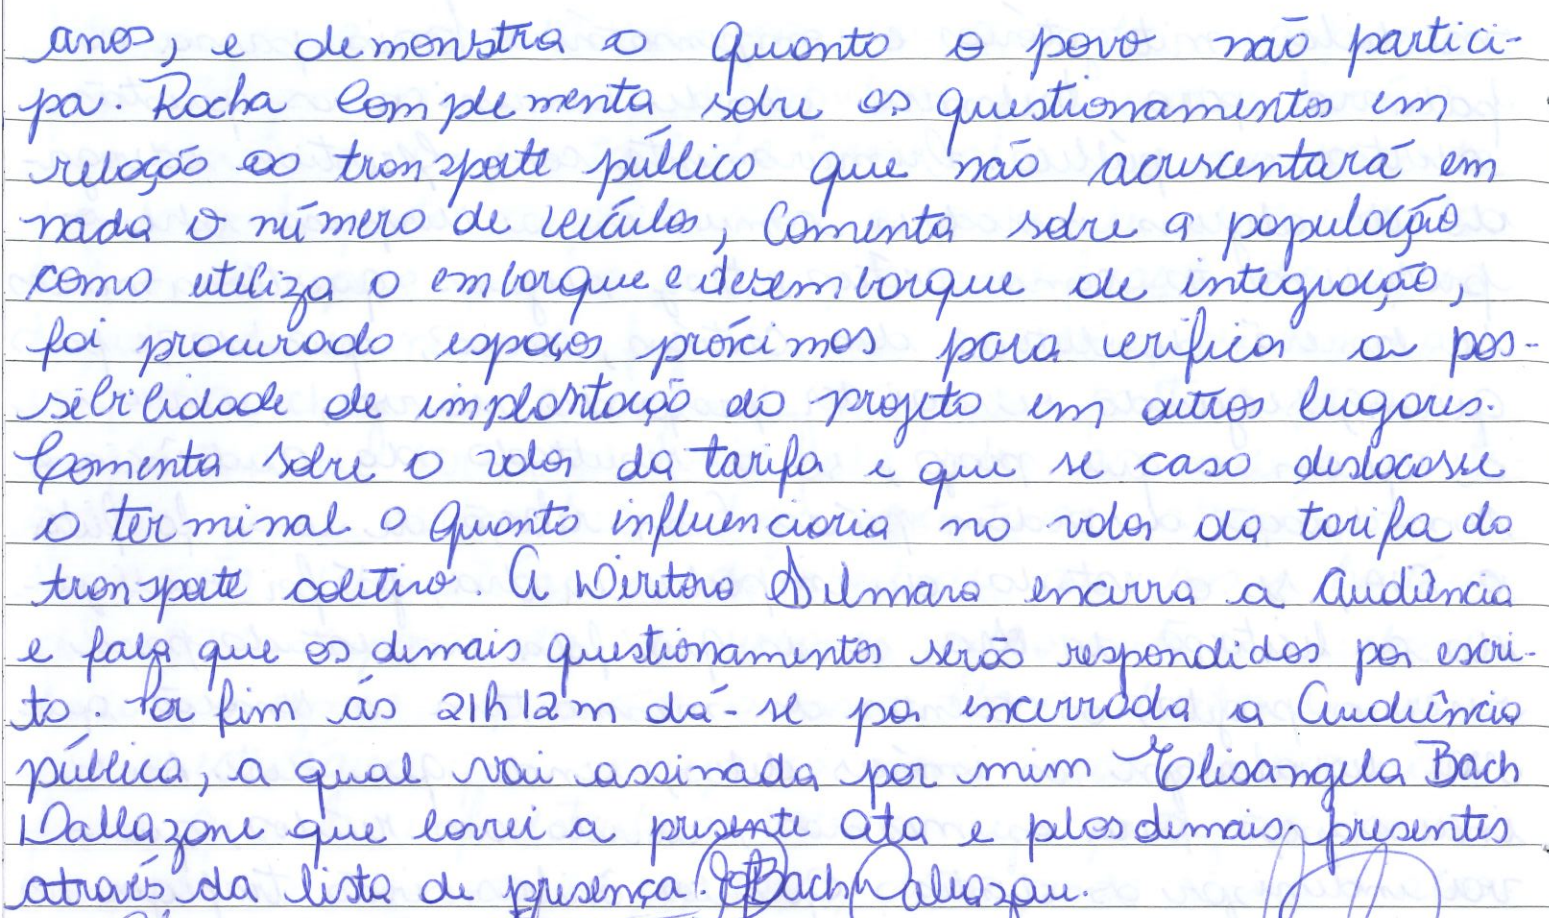 anos, e demonstra o quanto o povo não partici-
pa. Rocha Complementa sobre os questionamentos em
relação ao transporte público que não acrescentará em
nada o número de veículos, Comenta sobre a população
como utiliza o embarque e desembarque de integração,
foi procurado espaços próximos para verificar a pos-
sibilidade de implantação do projeto em outros lugares.
Comenta sobre o valor da tarifa e que se caso deslocasse
o terminal o quanto influenciaria no valor da tarifa do
transporte coletivo. A Diretora Silmara encerra a Audiência
e fala que os demais questionamentos serão respondidos por escri-
to Por fim ás 21h12m dá-se por encerrada a Audiência
pública, a qual vai assinada por mim Elisangela Bach
Dallazone que lavrei a presente Ata e pelos demais presentes
através da lista de presença. Bach Dallazone.